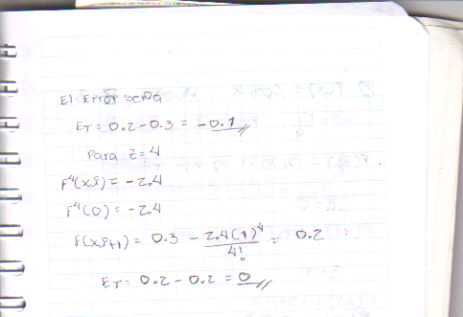 El Error será
ET = 0.2 - 0.3 = -0.1
Para z = 4
F⁴(xi) = -2.4
F⁴(0) = -2.4
F(xi+1) = 0.3 - 2.4(1)⁴/4! = 0.2
ET = 0.2 - 0.2 = 0